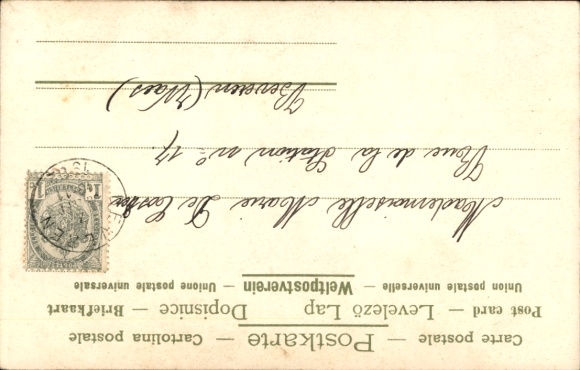 Carte postale — Postkarte — Cartolina postale
Post card — Levelező Lap — Dopisnice — Briefkaart
Union postale universelle — Weltpostverein — Unione postale universale
Mademoiselle Marie De
Rue de la Station nº 17.
Beveren (Waes)